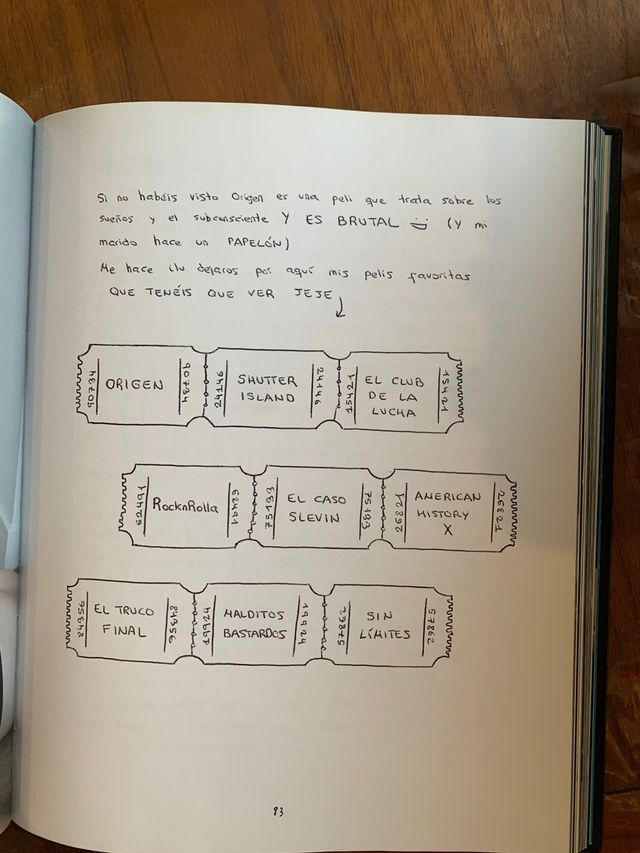 Si no habéis visto Origen es una peli que trata sobre los
sueños y el subconsciente Y ES BRUTAL :) (Y mi
marido hace un PAPELÓN)
Me hace ilu dejaros por aquí mis pelis favoritas
QUE TENÉIS QUE VER JEJE
90734 ORIGEN 90734 24146 SHUTTER ISLAND 24146 15421 EL CLUB DE LA LUCHA 15421
RocknRolla 62491 75133 EL CASO SLEVIN 75133 26821 AMERICAN HISTORY X 26821
84356 EL TRUCO FINAL 84356 19924 MALDITOS BASTARDOS 19924 57862 SIN LÍMITES 57862
83